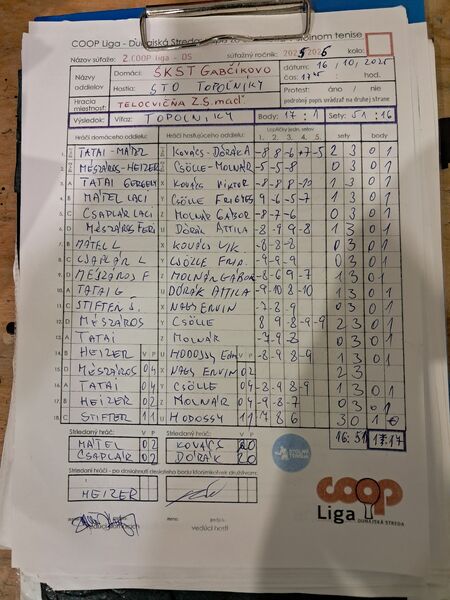 COOP Liga - Dunajská Streda stolnom tenise
Názov súťaže: 2. COOP liga - DS súťažný ročník: 2025/2026 kolo:
Názvy oddielov Domáci: ŠKST GABČÍKOVO dátum: 16, 10, 2025
čas: hod.
Hostia: STO TOPOĽNÍKY Protest: áno / nie
Hracia miestnosť: TELOCVIČŇA Z.Š. podrobný popis uviesť na druhej strane
Výsledok: Víťaz: TOPOĽNÍKY Body: 17 : 1 Sety: 51 : 16
Hráči domáceho oddielu Hráči hosťujúceho oddielu Loptičky jedn. setov sety body
1. 2. 3. 4. 5.
1. TATAI - MÁTEL KOVÁCS - DÓRÁK A -8 -8 6 +7 -5 2 3 0 1
2. MÉSZÁROS - HEIZER CSÖLLE - MOLNÁR -5 -5 -8 0 3 0 1
3. A TATAI GERGELY X KOVÁCS VIKTOR -8 -8 8 -10 1 3 0 1
4. B MÁTEL LACI Y CSÖLLE FRIGYES 9 -6 -5 -7 1 3 0 1
5. C CSAPLÁR LACI Z MOLNÁR GÁBOR -8 -7 -6 0 3 0 1
6. D MÉSZÁROS FERI U DÓRÁK ATTILA -8 -9 9 -8 1 3 0 1
7. B MÁTEL L X KOVÁCS VIK -8 -8 -8 0 3 0 1
8. C CSAPLÁR L Y CSÖLLE FRIG. -9 -9 -9 0 3 0 1
9. D MÉSZÁROS F Z MOLNÁR GÁBOR -8 -6 9 -7 1 3 0 1
10. A TATAI G U DÓRÁK ATTILA -9 -10 8 -10 1 3 0 1
11. C X NAGY ERVIN -7 -8 -9 0 3 0 1
12. D MÉSZÁROS Y CSÖLLE 8 9 -8 -9 -9 2 3 0 1
13. A TATAI Z MOLNÁR -7 -9 -8 0 3 0 1
14. B HEIZER V P U HODOSSY V P -8 -9 8 -9 1 3 0 1
15. D MÉSZÁROS 0 4 X NAGY ERVIN 0 2 2 3
16. A TATAI 0 4 Y CSÖLLE 0 4 -8 -9 8 -9 1 3 0 1
17. B HEIZER 0 2 Z MOLNÁR 0 4 -9 -8 -7 0 3 0 1
18. C STIFTER 1 1 U HODOSSY 1 1 7 8 6 3 0 1 0
Striedaný hráč: V P Striedaný hráč: V P sety body
MÁTEL 0 2 KOVÁCS 2 0 16:51 1:17
CSAPLÁR 0 2 DÓRÁK 2 0
STOLNÝ TENIS
HEIZER
coop
Liga DUNAJSKÁ STREDA
vedúci hostí